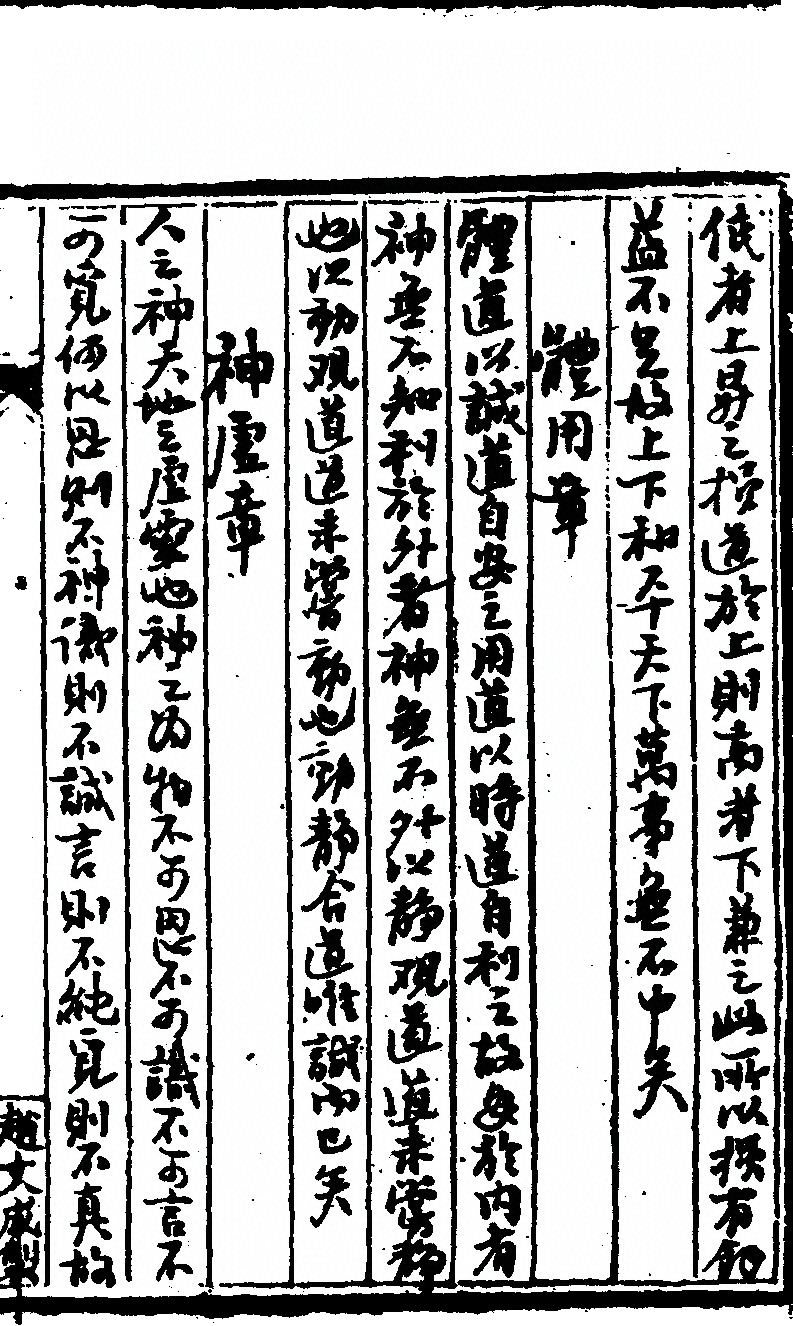 低者上昇之損道於上則高者下兼之此所以損有餘
益不足故上下和平天下萬事無不中矣
體用章
體道以誠道自安之用道以時道自利之故安於内者
神無不知利於外者神無不外以静观道道未嘗静
也以動观道道未嘗動也動静合道唯誠而已矣
神虛章
人之神天地之虛靈也神之為物不可思不可識不可言不
可覓何以思則不神識則不誠言則不純覓則不真故
趙文成製